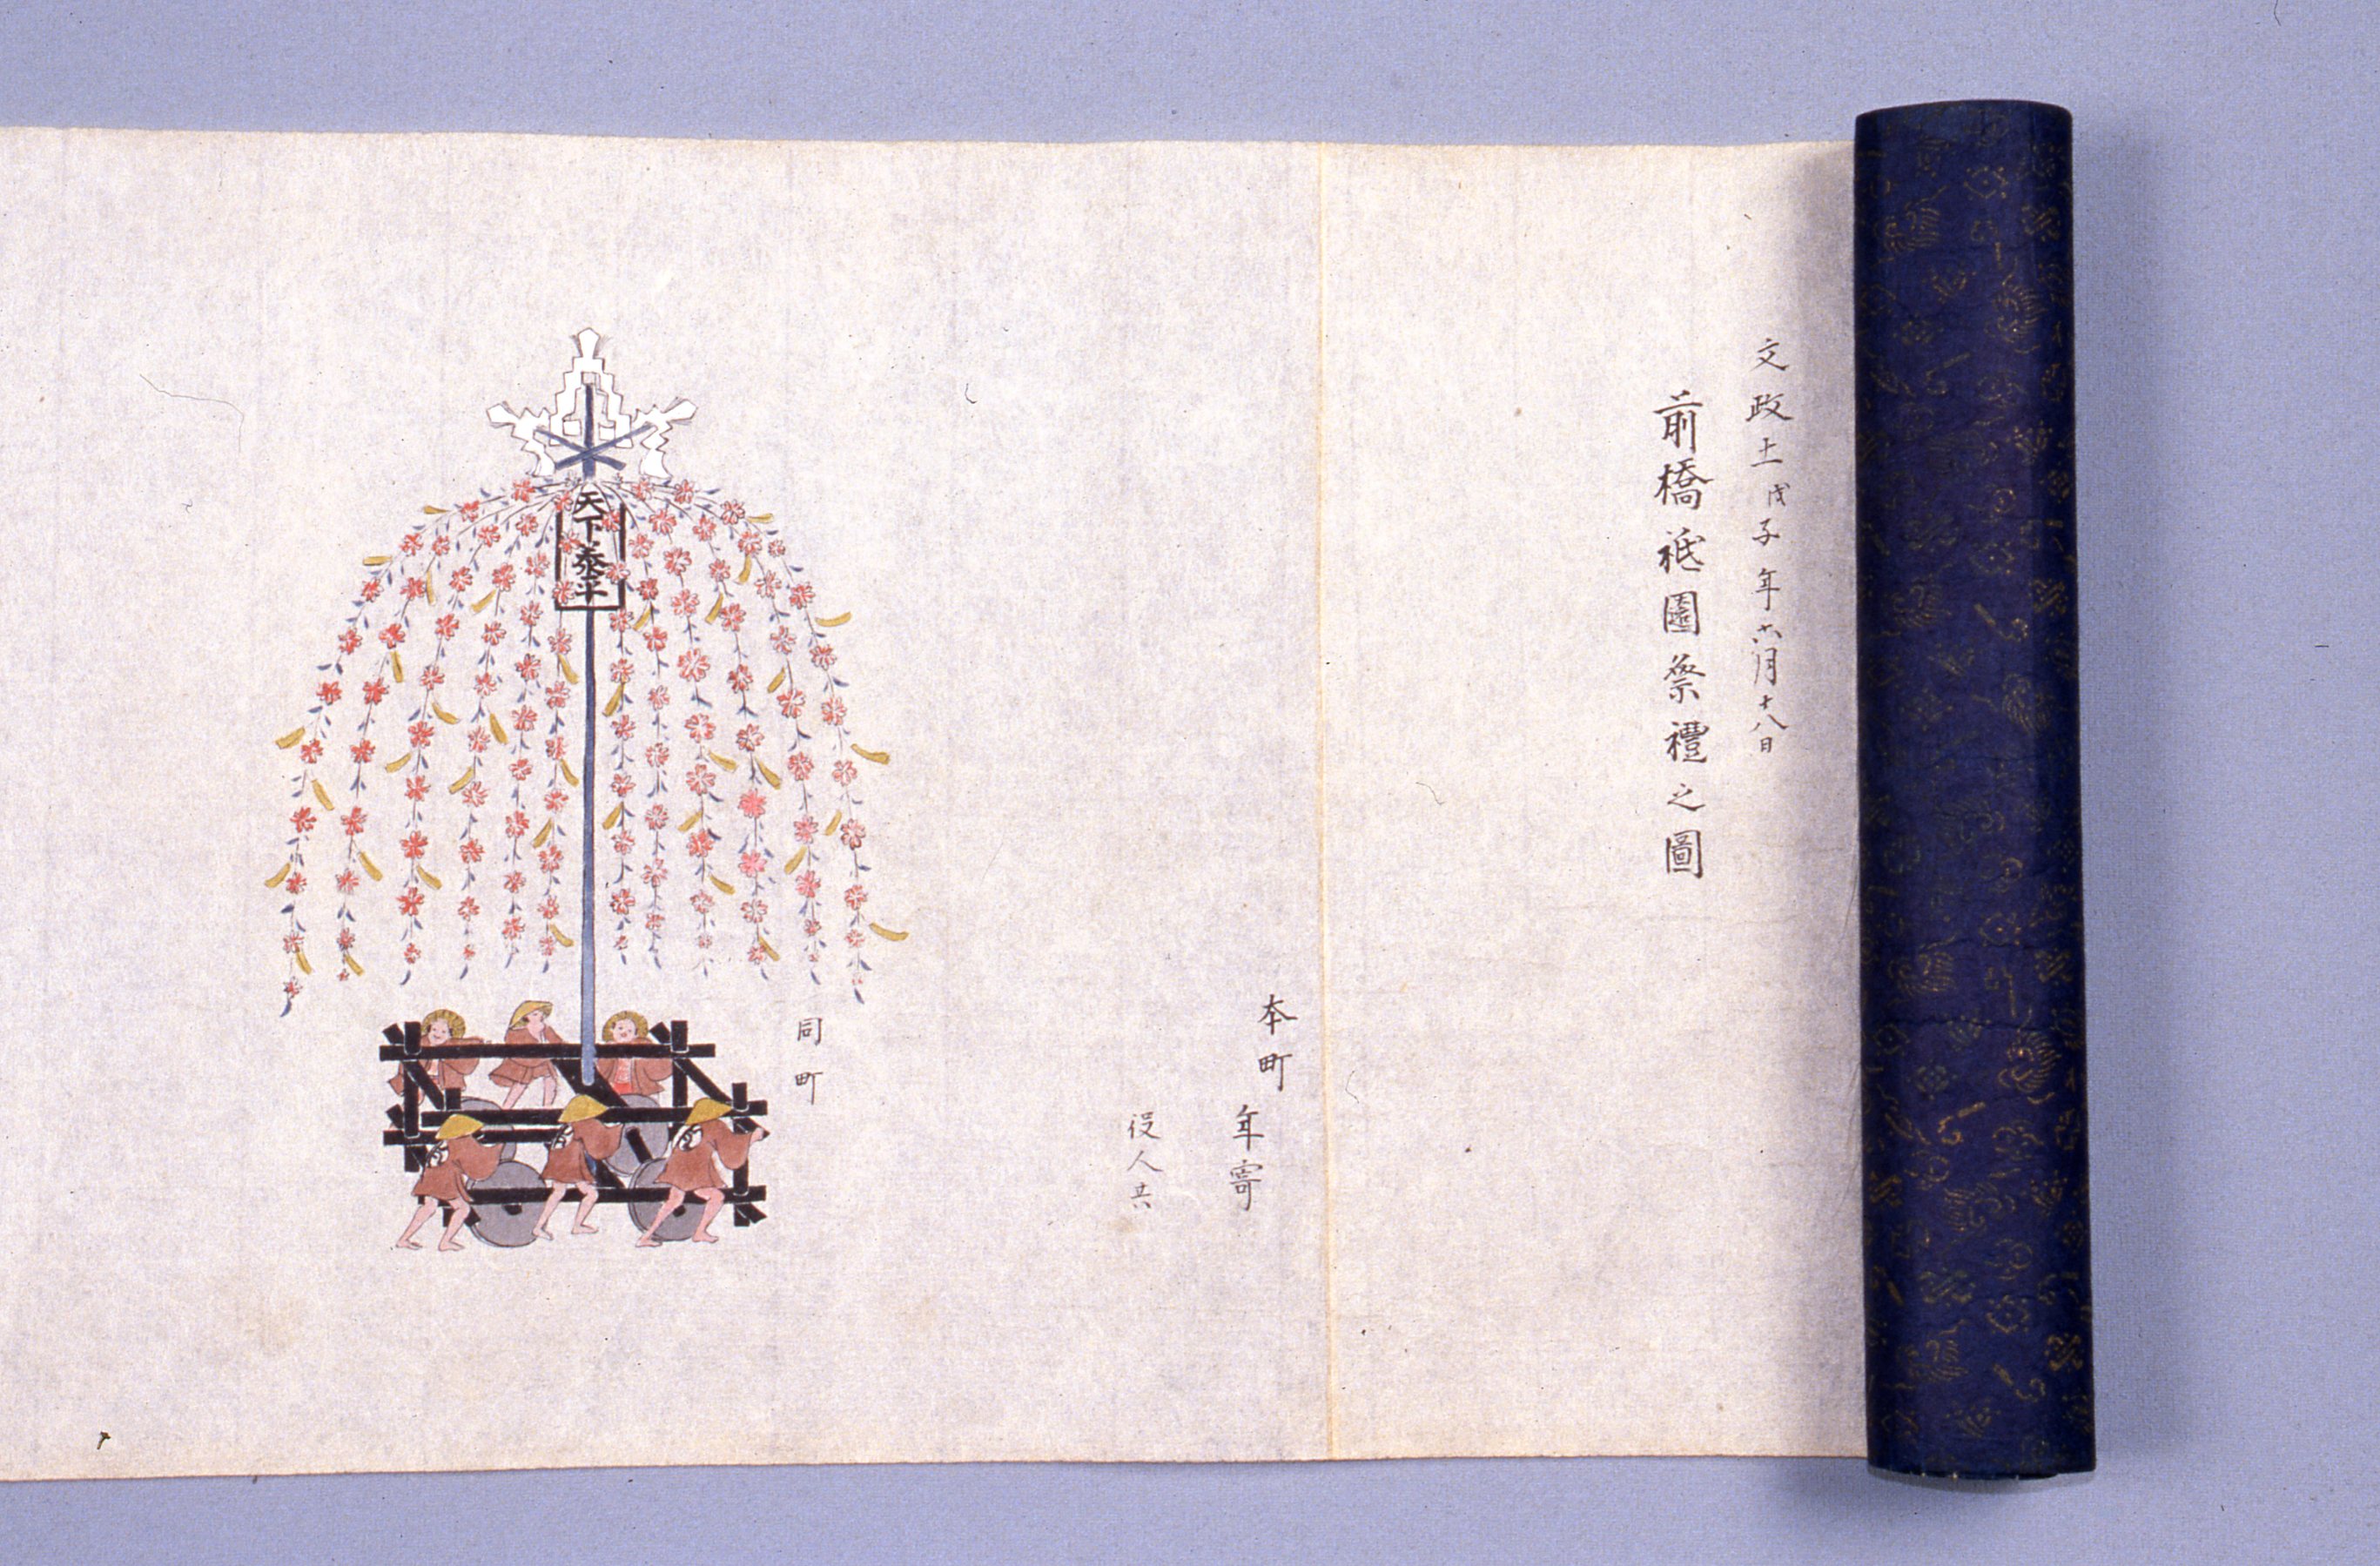 文政十一戊子年六月十八日
前橋祇園祭禮之圖
本町
年寄
役人共
同町
天下泰平